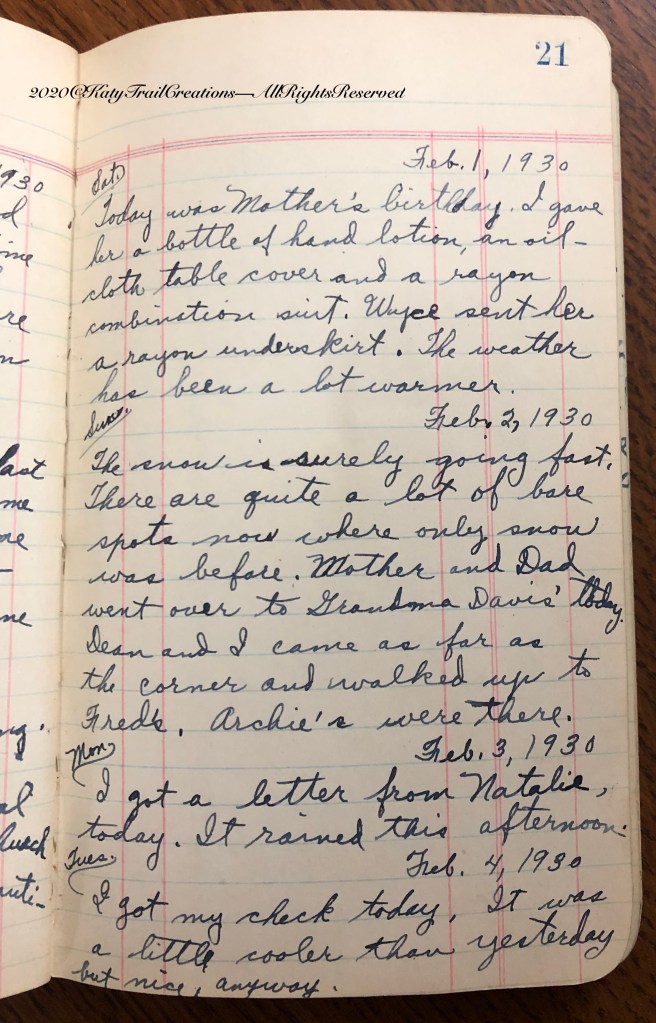 21
2020©KatyTrailCreations—AllRightsReserved
Feb. 1, 1930
Sat.
Today was Mother's birthday. I gave
her a bottle of hand lotion, an oil-
cloth table cover and a rayon
combination suit. Wyce sent her
a rayon underskirt. The weather
has been a lot warmer.
Sun.
Feb. 2, 1930
The snow is surely going fast.
There are quite a lot of bare
spots now where only snow
was before. Mother and Dad
went over to Grandma Davis' today.
Dean and I came as far as
the corner and walked up to
Fred's. Archie's were there.
Mon.
Feb. 3, 1930
I got a letter from Natalie,
today. It rained this afternoon.
Tues.
Feb. 4, 1930
I got my check today. It was
a little cooler than yesterday
but nice, anyway.
930
ime
re
n
last
me
ne
-
ne
ng.
al
uti-